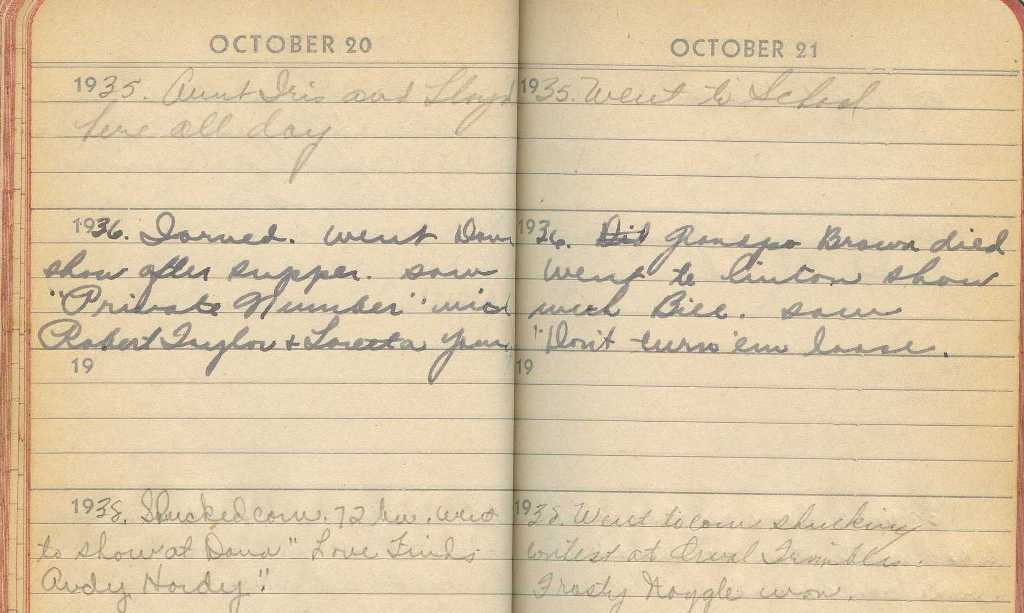 OCTOBER 20
1935. Aunt Iris and Lloyd
here all day
1936. Iorned. went Dana
show after supper. saw
"Private Number" with
Robert Taylor & Loretta Young
19
1938. Shucked corn. 72 bu. went
to show at Dana "Love Finds
Andy Hardy."
OCTOBER 21
1935. Went to School
1936. Grandpa Brown died
Went to Clinton show
with Bill. saw
"Don't turn 'em loose.
19
1938. Went to corn shucking
contest at Orval Trimbles.
Frosty Naygle won.